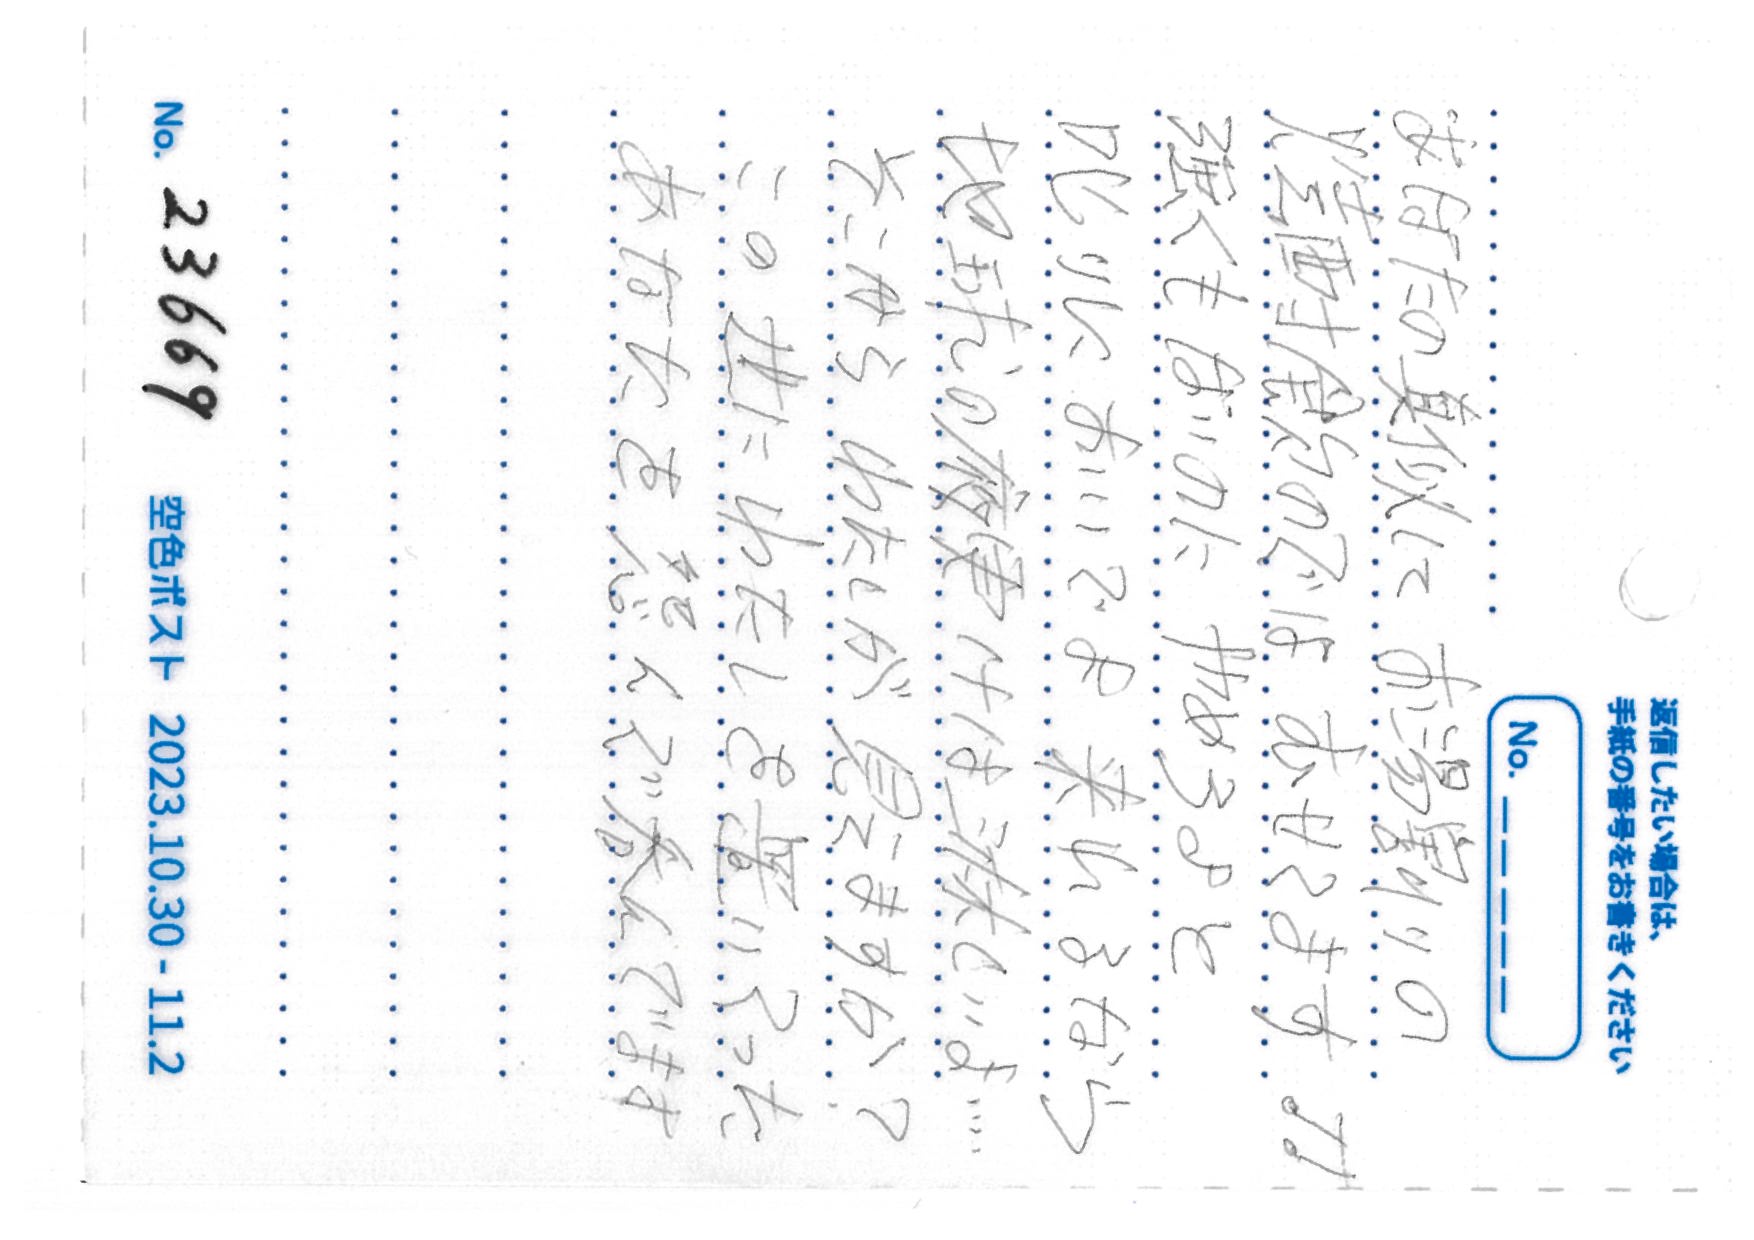 返信したい場合は、
手紙の番号をお書きください
No. _ _ _ _ _
あなたの真似に お湯割りの
焼酎飲のでは むせてます ♪♪
強くもないのに やめろよと
叱りにおいでよ 来れるなら
地球の夜更けは淋しいよ‥‥
そこから わたしが 見えますか?
この世にわたしを置いてった
あなたを怨んで呑んでます
No. 23669 空色ポスト 2023.10.30 - 11.2